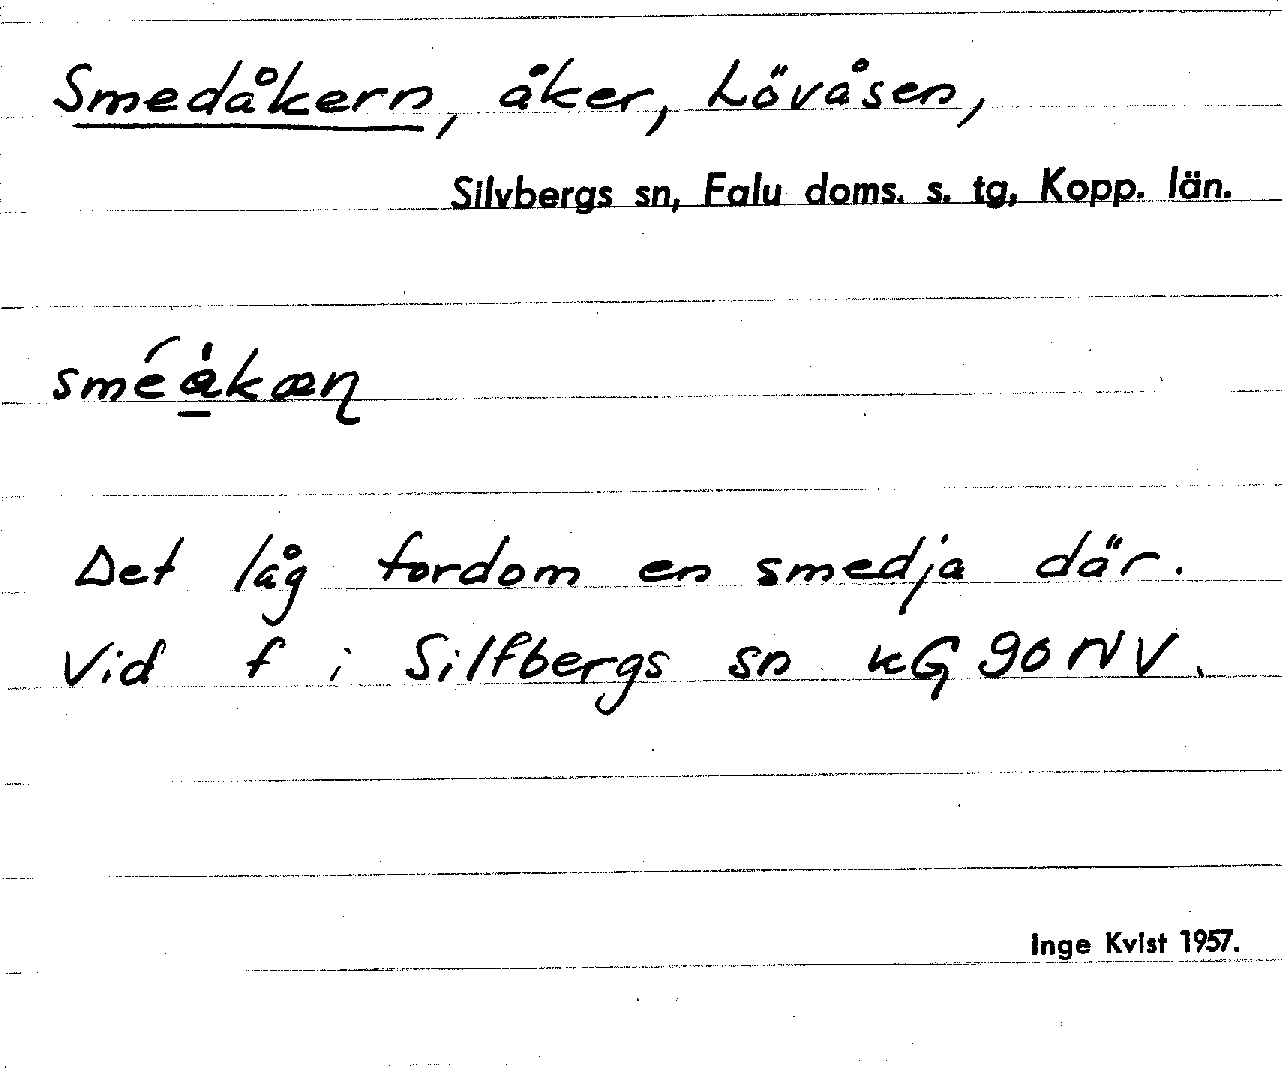 Smedåkern, åker, Lövåsen,
Silvbergs sn, Falu doms. s. tg, Kopp. län.
sméåkæɳ
Det låg fordom en smedja där.
Vid f i Silfbergs sn kG 90 NV.
Inge Kvist 1957.